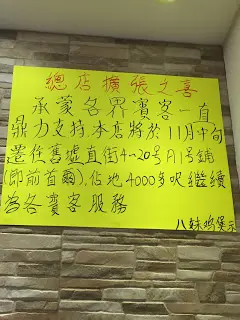 總店擴張之喜
承蒙各界賓客一直
鼎力支持.本店將於11月中旬
遷往舊墟直街4-20号A1号鋪
(即前首爾),佔地4000多呎繼續
為各賓客服務
八妹鸡煲示